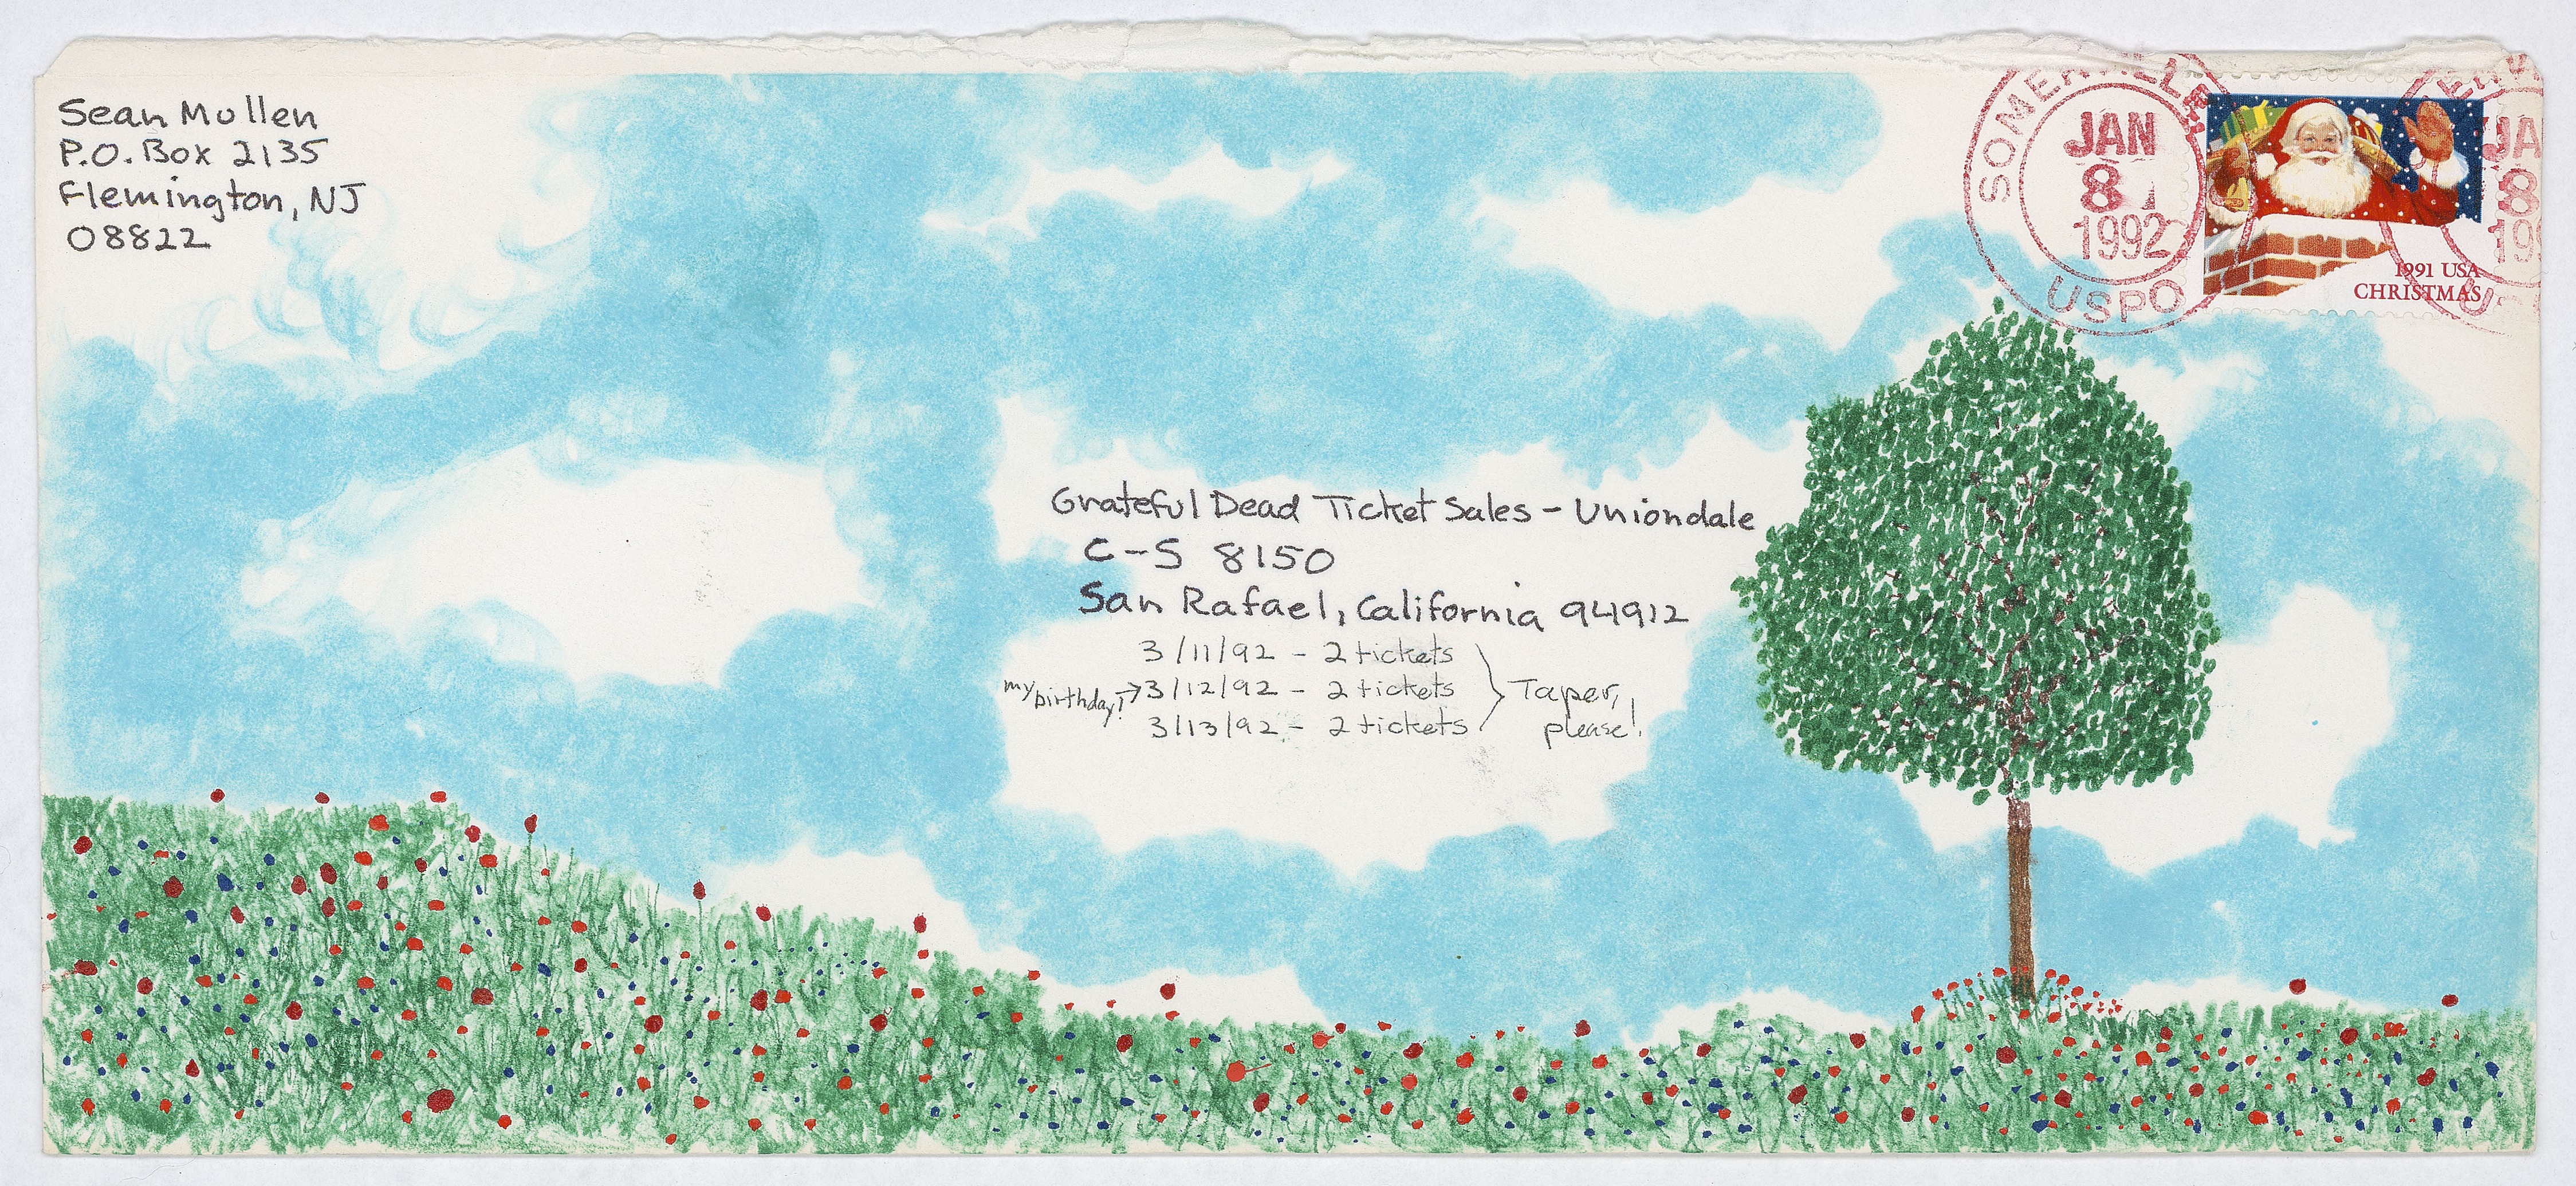 Sean Mullen
P.O. Box 2135
Flemington, NJ
08822
SOMERVILLE
JAN
8
1992
USPO
JA
8
199
1991 USA
CHRISTMAS
Grateful Dead Ticket Sales - Uniondale
C-S 8150
San Rafael, California 94912
3/11/92 - 2 tickets
my birthday! → 3/12/92 - 2 tickets
3/13/92 - 2 tickets
Taper,
please!